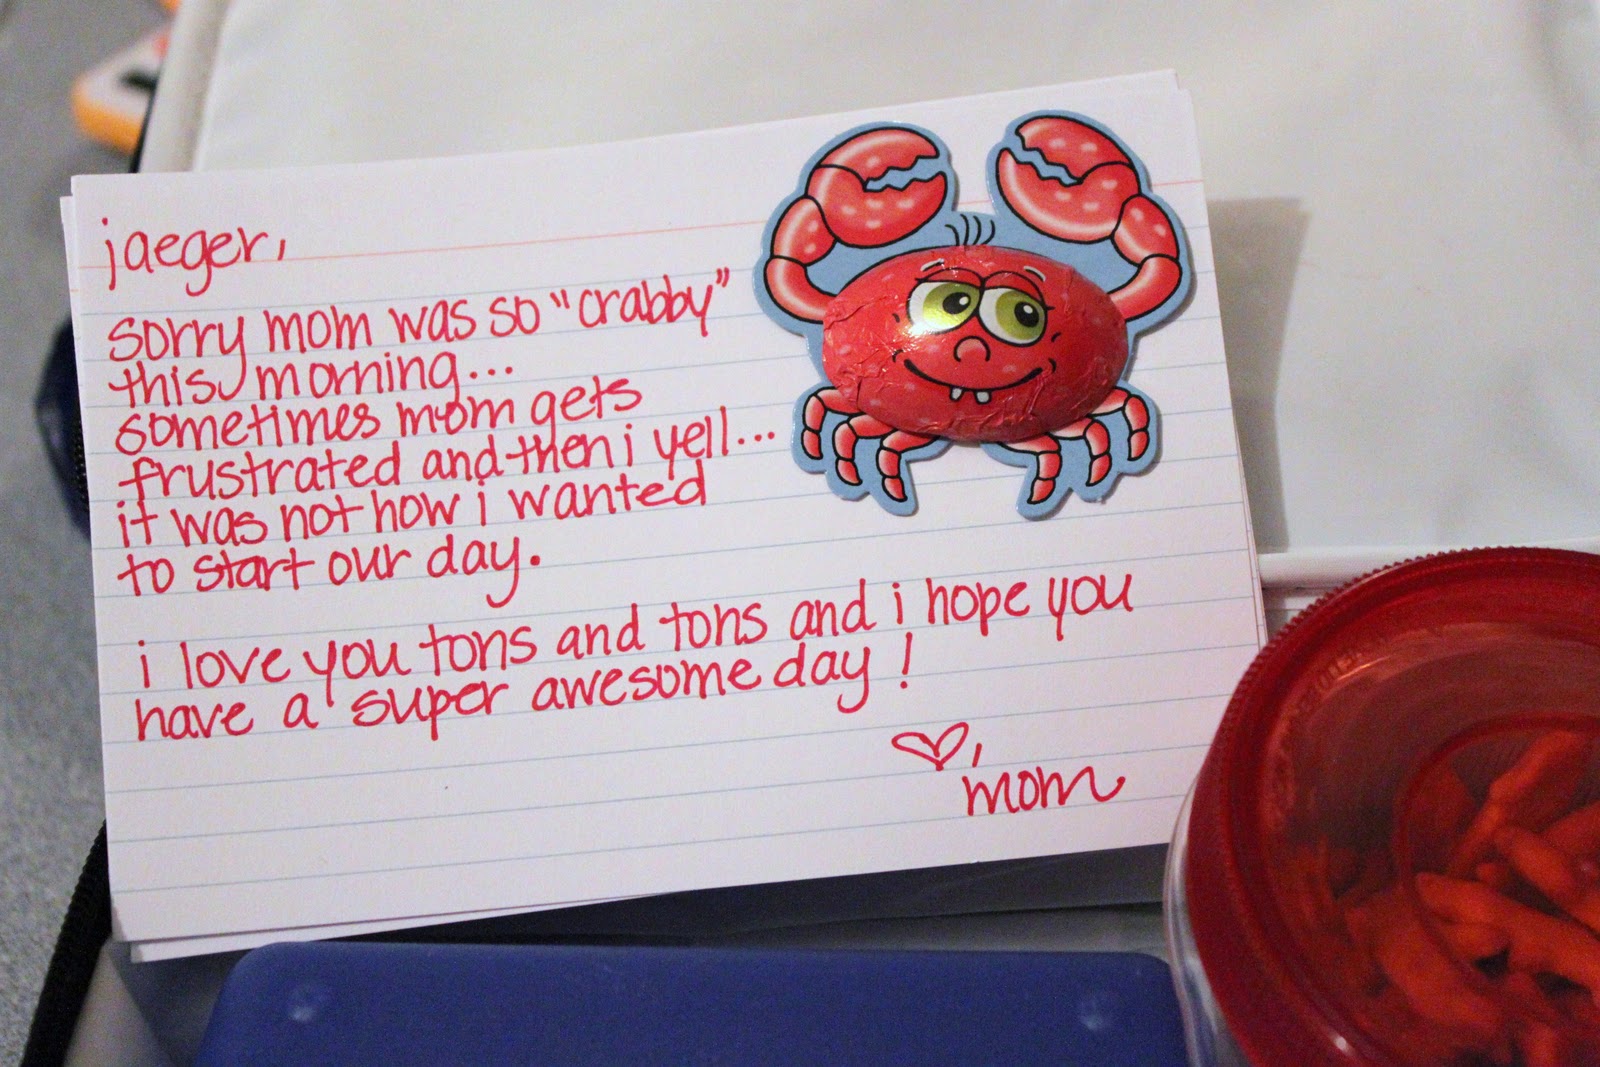 jaeger,
sorry mom was so "crabby"
this morning...
sometimes mom gets
frustrated and then i yell...
it was not how i wanted
to start our day.
i love you tons and tons and i hope you
have a super awesome day!
♡,
mom